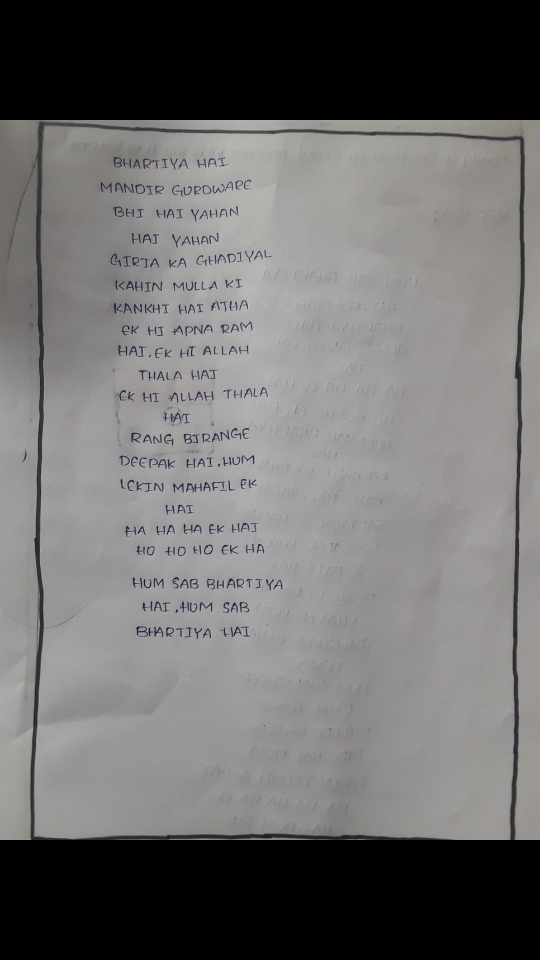 BHARTIYA HAI
MANDIR GURDWARE
BHI HAI YAHAN
HAI YAHAN
GIRJA KA GHADIYAL
KAHIN MULLA KI
KANKHI HAI ATHA
EK HI APNA RAM
HAI, EK HI ALLAH
THALA HAI
EK HI ALLAH THALA
HAI
RANG BIRANGE
DEEPAK HAI, HUM
LEKIN MAHAFIL EK
HAI
HA HA HA EK HAI
HO HO HO EK HA
HUM SAB BHARTIYA
HAI, HUM SAB
BHARTIYA HAI